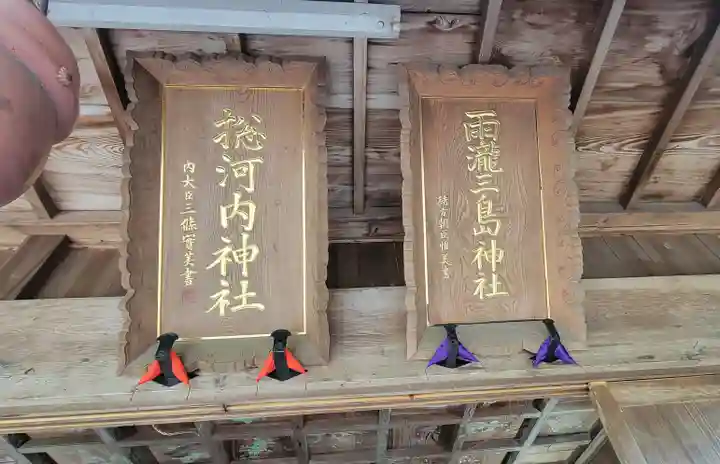 雨瀧三島神社
惣河内神社
内大臣三條實美書